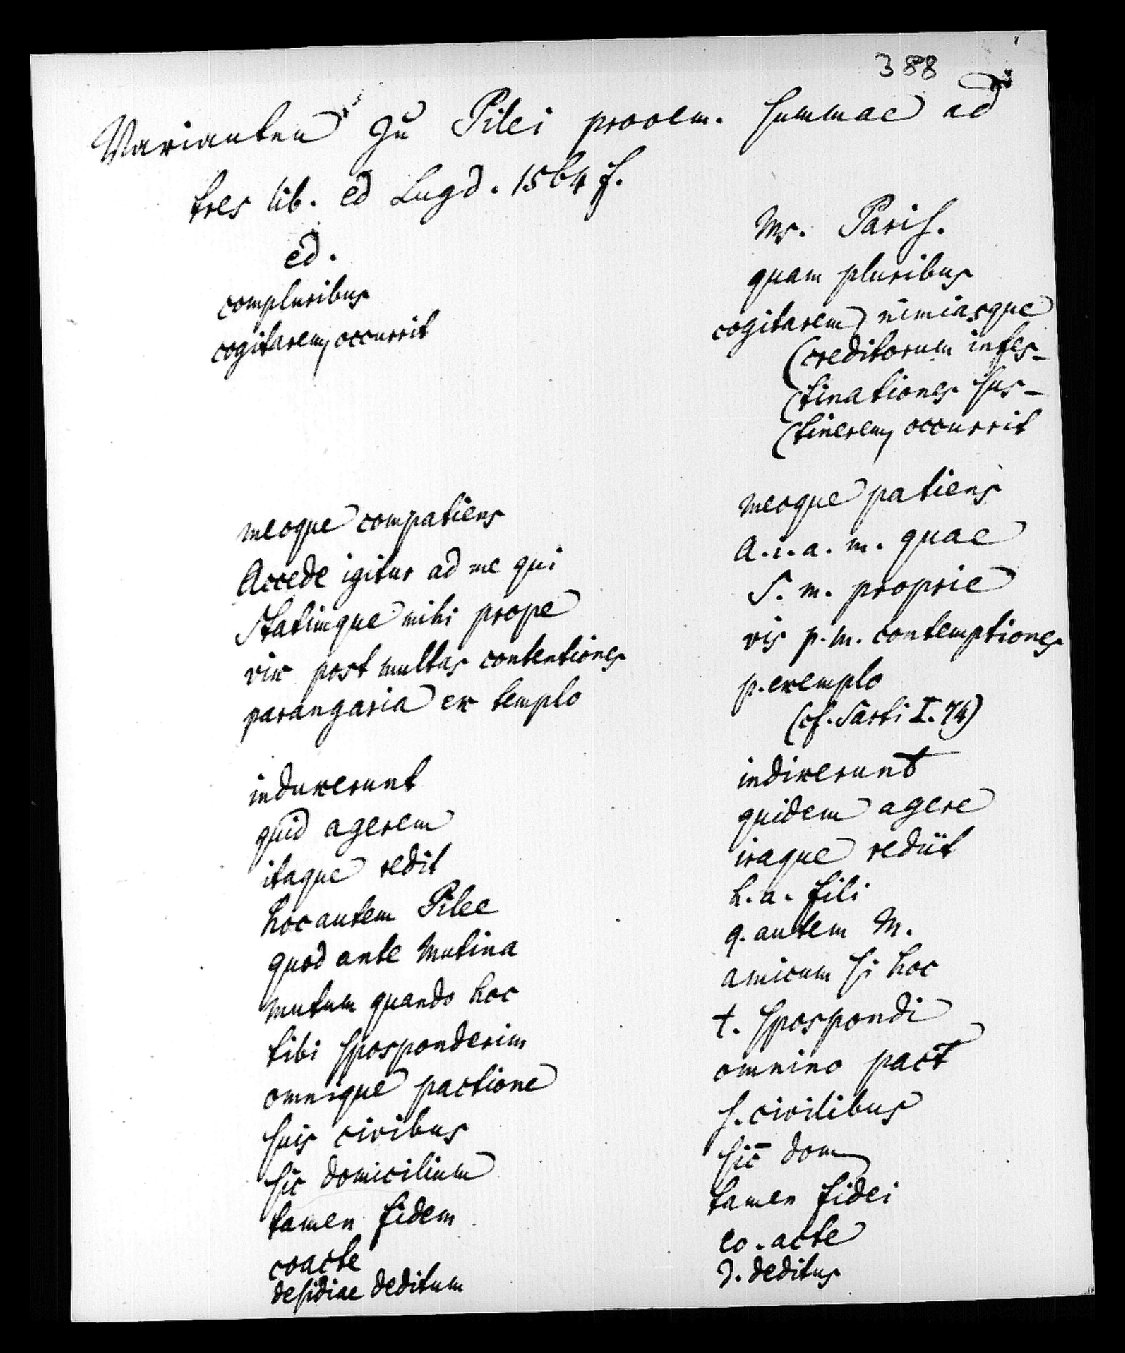 388
Varianten zu Pilei prooem. summae ad
tres lib. ed Lugd. 1564 f.
ed.
Ms. Paris.
compluribus
quam pluribus
cogitarem, occurrit
cogitarem, nimiasque
(creditorum infes-
(tinationes sus-
(tinerem, occurrit
meoque compatiens
meoque patiens
Accede igitur ad me qui
A. i. a. m. quae
Statimque mihi prope
S. m. proprie
vix post multas contentiones
vis p. m. contemptiones
parangaria ex templo
p. exemplo
(cf. Sarti I. 74)
induxerunt
indixerunt
quid agerem
quidem agere
itaque redit
iraque rediit
hoc autem Pilee
h. a. fili
quod ante Mutina
q. autem M.
mutum quando hoc
amicum si hoc
tibi sposponderim
t. spospondi
omnique pactione
omnino pact
suis civibus
s. civilibus
sic domicilium
sic dom
tamen fidem
tamen fidei
coacte
co. acte
desidiae deditum
d. deditus